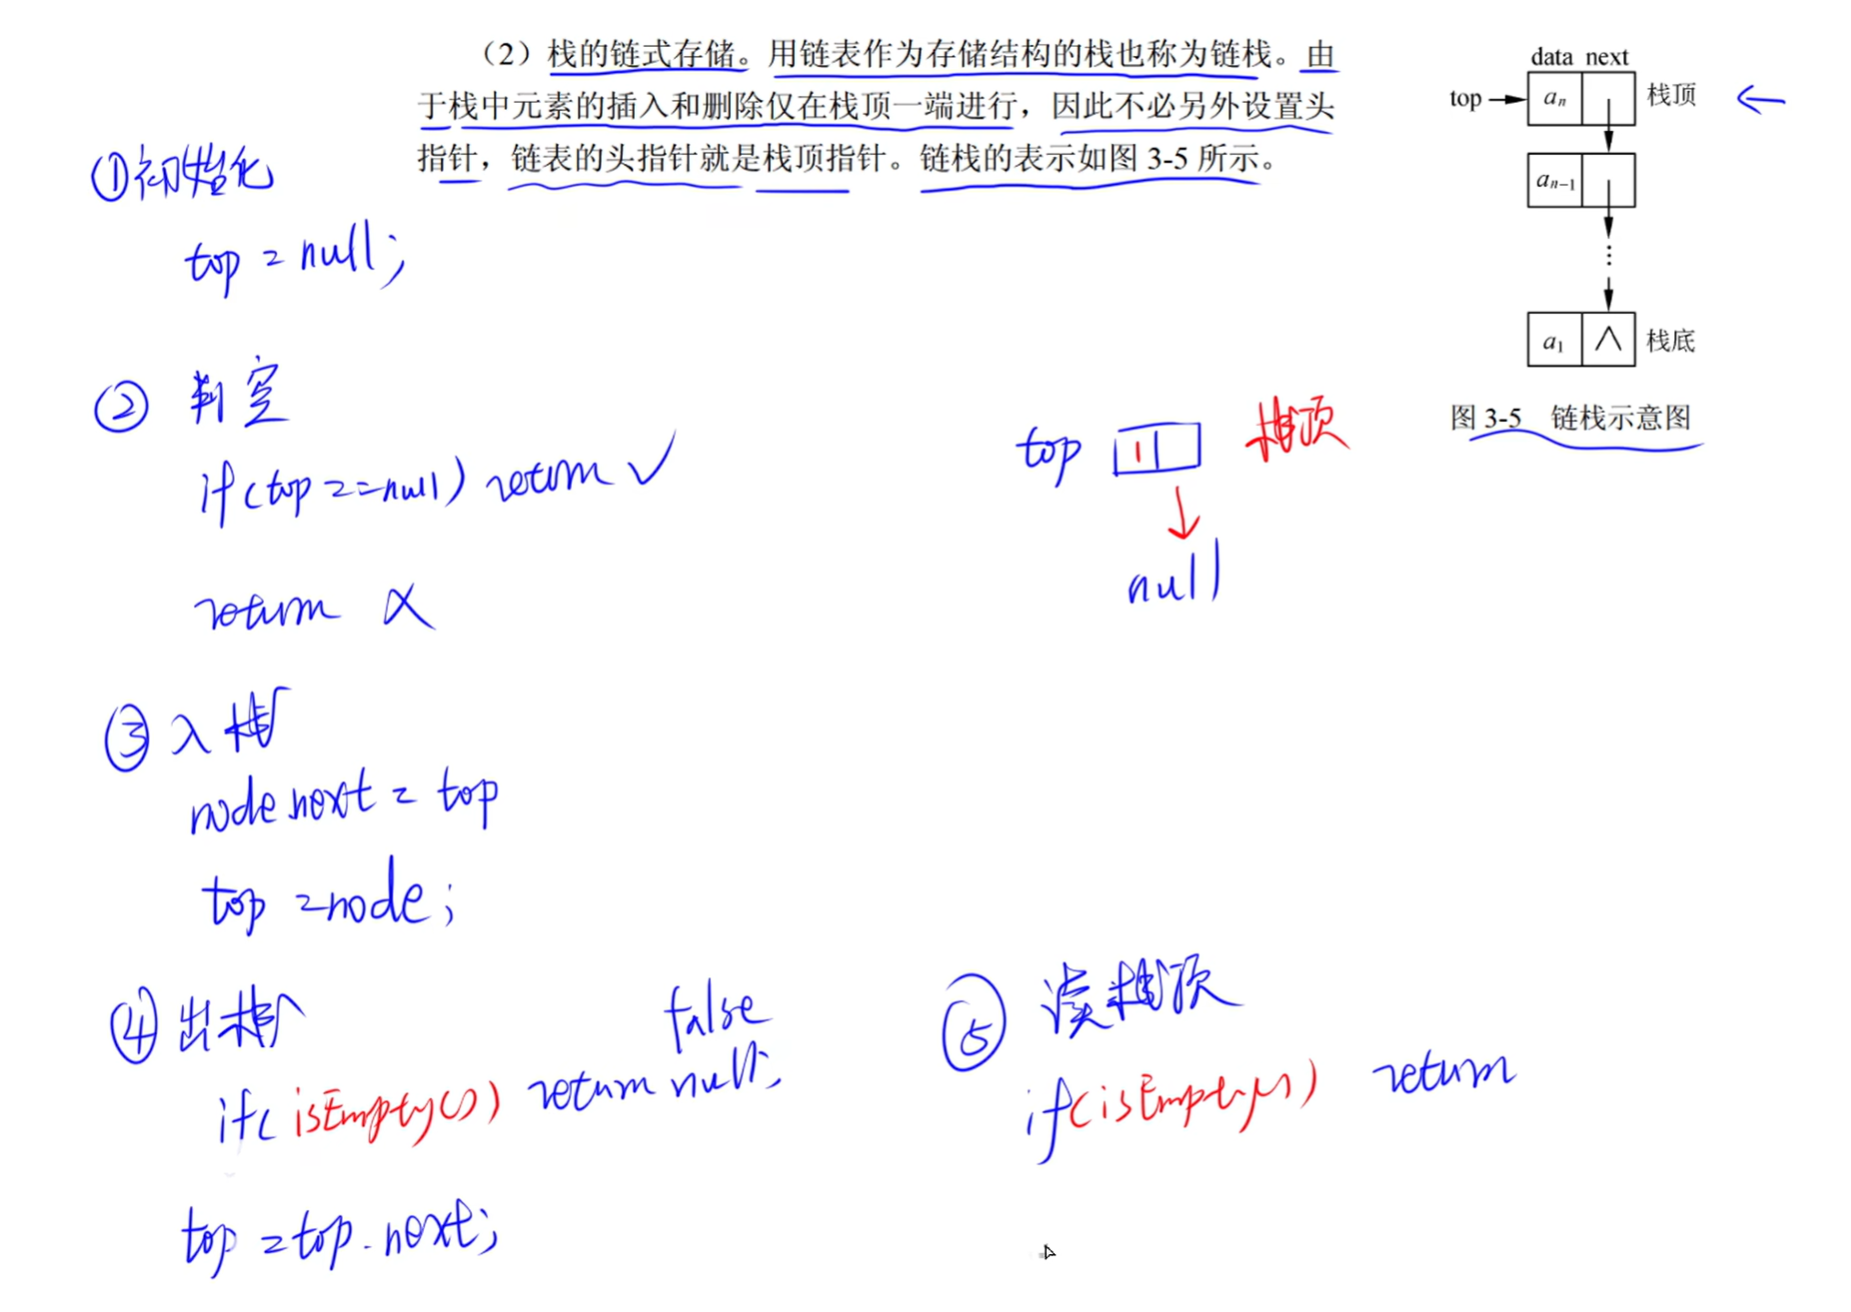 （2）栈的链式存储。用链表作为存储结构的栈也称为链栈。由
于栈中元素的插入和删除仅在栈顶一端进行，因此不必另外设置头
指针，链表的头指针就是栈顶指针。链栈的表示如图 3-5 所示。
data next
top aₙ 栈顶
aₙ₋₁
⋮
a₁ ∧ 栈底
图 3-5 链栈示意图
①初始化
top = null;
② 判空
if(top == null) return ✓
return ×
top 1 栈顶
null
③ 入栈
node next = top
top = node;
④ 出栈
false
if( isEmpty()) return null;
top = top.next;
⑤ 读栈顶
if(isEmpty()) return